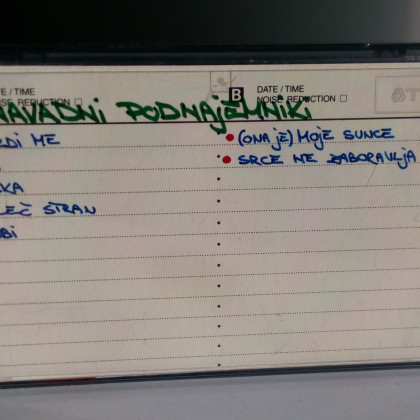 E / TIME
NOISE REDUCTION
B DATE / TIME
NOISE REDUCTION
NAVADNI PODNAJEMNIKI
RDI ME
KA
LEČ STRAN
BI
(ONA JE) MOJE SUNCE
SRCE NE ZABORAVLJA